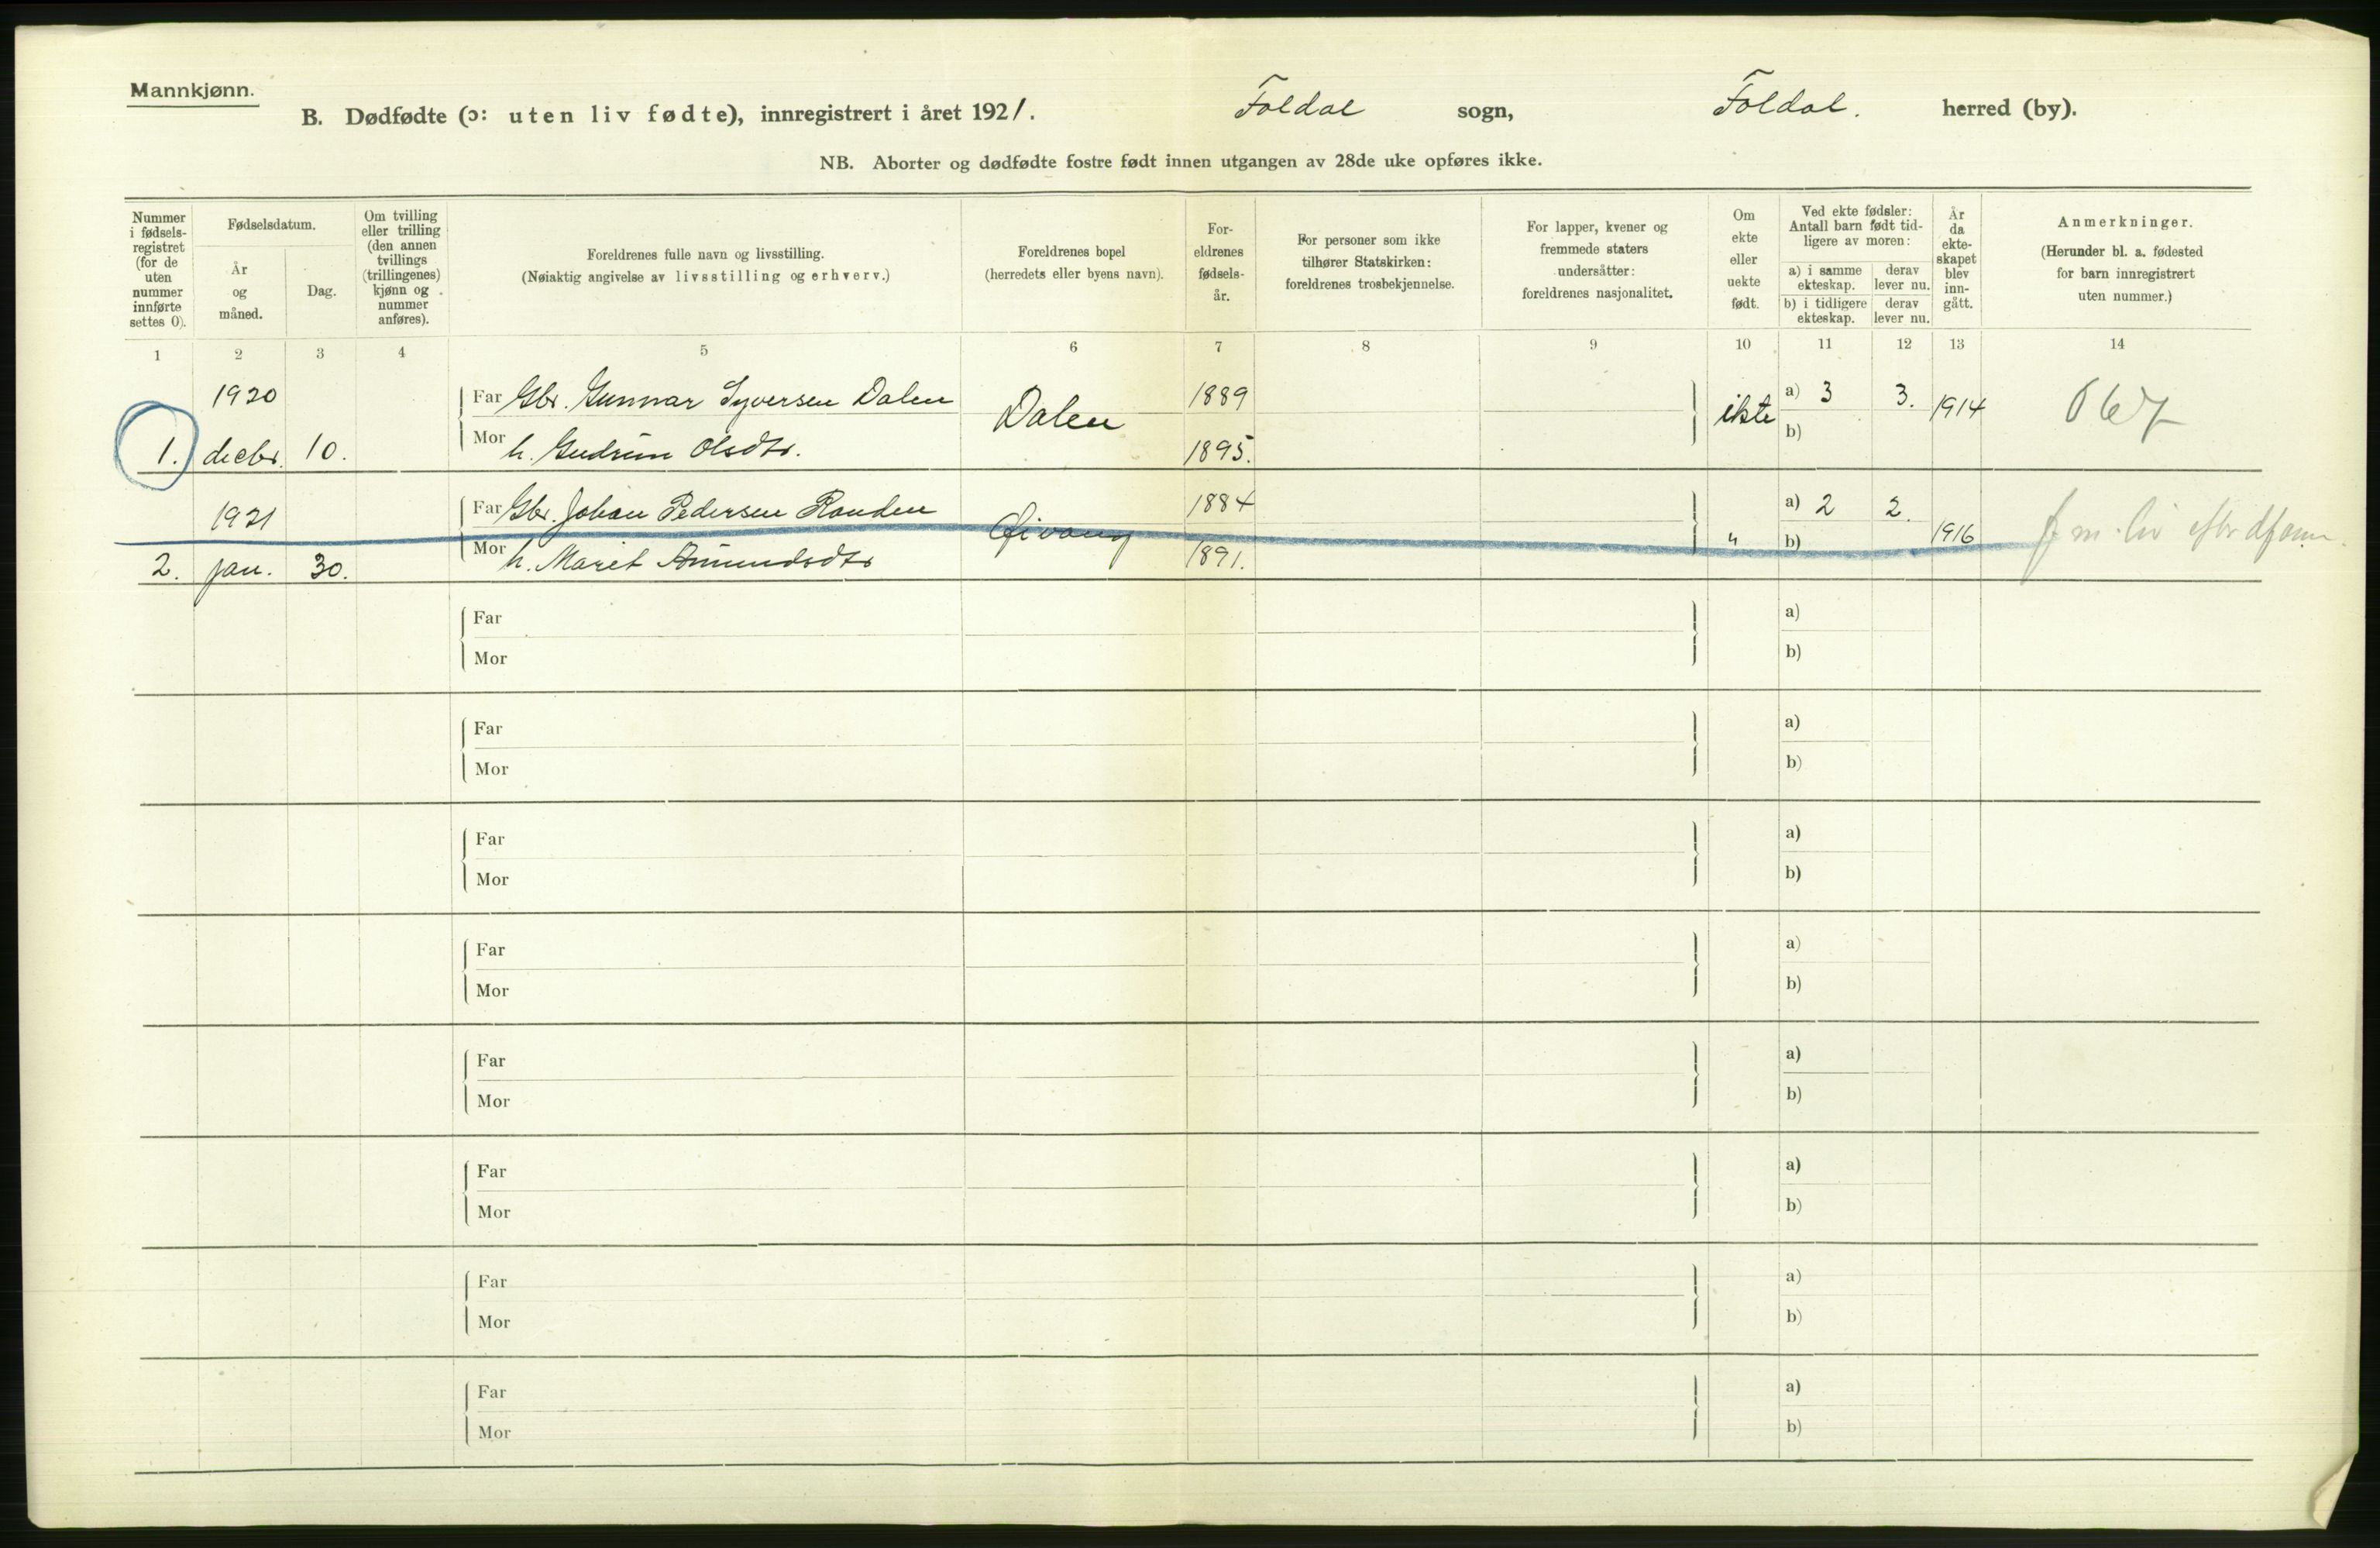 Mannkjønn.
B. Dødfødte (ɔ: uten liv fødte), innregistrert i året 1921. Foldal sogn, Foldal. herred (by).
NB. Aborter og dødfødte fostre født innen utgangen av 28de uke opføres ikke.
Nummer i fødsels-registret (for de uten nummer innførte settes 0).
Fødselsdatum.
År og måned.
Dag.
Om tvilling eller trilling (den annen tvillings (trillingenes) kjønn og nummer anføres).
Foreldrenes fulle navn og livsstilling.
(Nøiaktig angivelse av livsstilling og erhverv.)
Foreldrenes bopel
(herredets eller byens navn).
For-eldrenes fødsels-år.
For personer som ikke tilhører Statskirken: foreldrenes trosbekjennelse.
For lapper, kvener og fremmede staters undersåtter: foreldrenes nasjonalitet.
Om ekte eller uekte født.
Ved ekte fødsler: Antall barn født tid-ligere av moren:
a) i samme ekteskap.
derav lever nu.
b) i tidligere ekteskap.
derav lever nu.
År da ekte-skapet blev inn-gått.
Anmerkninger.
(Herunder bl. a. fødested for barn innregistrert uten nummer.)
1 2 3 4 5 6 7 8 9 10 11 12 13 14
1920 Far Gbr. Gunnar Syversen Dalen Dalen 1889 ekte a) 3 3. 1914
1. decbr. 10. Mor h. Gudrun Olsdtr. 1895. b)
1921 Far Gbr. Johan Pedersen Randen 1884 a) 2 2. 1916
2. jan. 30. Mor h. Marit Amundsdtr 1891. " b)
Far a)
Mor b)
Far a)
Mor b)
Far a)
Mor b)
Far a)
Mor b)
Far a)
Mor b)
Far a)
Mor b)
Far a)
Mor b)
Far a)
Mor b)